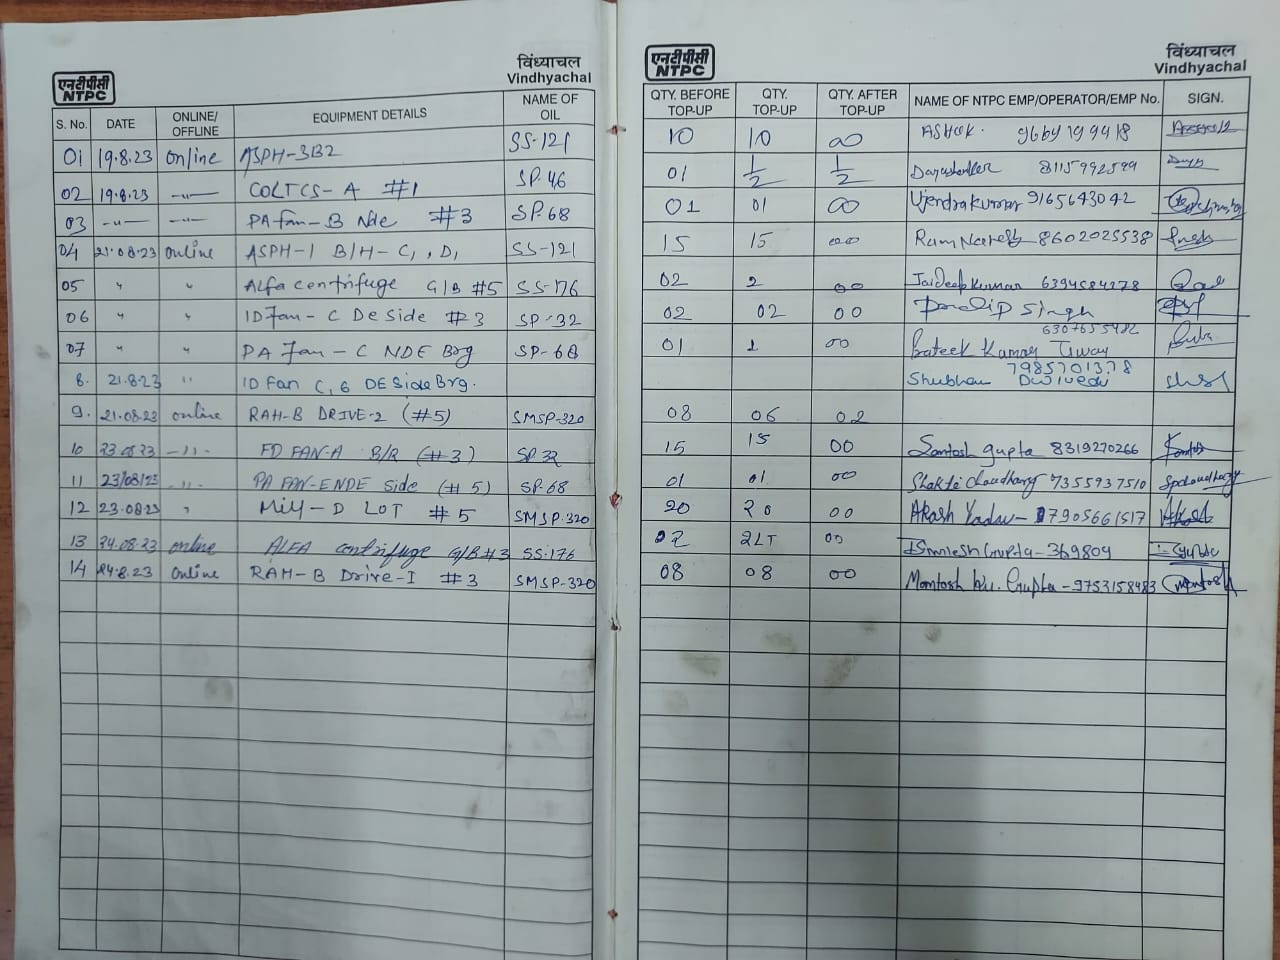 एनटीपीसी
NTPC
विंध्याचल
Vindhyachal
S. No. DATE ONLINE/OFFLINE EQUIPMENT DETAILS NAME OF OIL
01 19.8.23 Online ASPH-3B2 SS-121
02 19.8.23 -"- COLTCS-A #1 SP-46
03 -"- -"- PA fan-B Nde #3 SP-68
04 21.08.23 online ASPH-1 B/H-C1, D1 SS-121
05 " " Alfa centrifuge G/B #5 SS-176
06 " " ID Fan-C De Side #3 SP-32
07 " " PA Fan-C NDE Brg SP-68
8. 21.8.23 " ID Fan C, 6 DE Side Brg.
9. 21.08.23 online RAH-B DRIVE-2 (#5) SMSP-320
10 23.08.23 -"- FD FAN-A B/R (#3) SP 32
11 23/08/23 -"- PA FAN-E NDE side (#5) SP-68
12 23.08.23 " Mill-D LOT #5 SMSP-320
13 24.08.23 online ALFA centrifuge G/B #3 SS-176
14 24.8.23 Online RAH-B Drive-I #3 SMSP-320
एनटीपीसी
NTPC
विंध्याचल
Vindhyachal
QTY. BEFORE TOP-UP QTY. TOP-UP QTY. AFTER TOP-UP NAME OF NTPC EMP/OPERATOR/EMP No. SIGN.
10 10 00 ASHOK.
01 1/2 1/2 Dayashanker 8115992599
01 01 00 Ujendra kumar 9165643042
15 15 00 Ram Naresh 8602025538
02 2 00 Jaideep Kumar 6394584278
02 02 00 Pradip Singh
01 1 00 6307655482
Prateek Kumar Tiwary
7985701378
Shubham Dwivedi
08 06 02
15 15 00 Santosh gupta 8319270266
01 01 00 Shakti Choudhary 7355937510 Spchoudhary
20 20 00 Akash Yadav- 7905661517
02 2LT 00 Gupta-369809
08 08 00 Mamtosh Ku. Gupta-9753158483